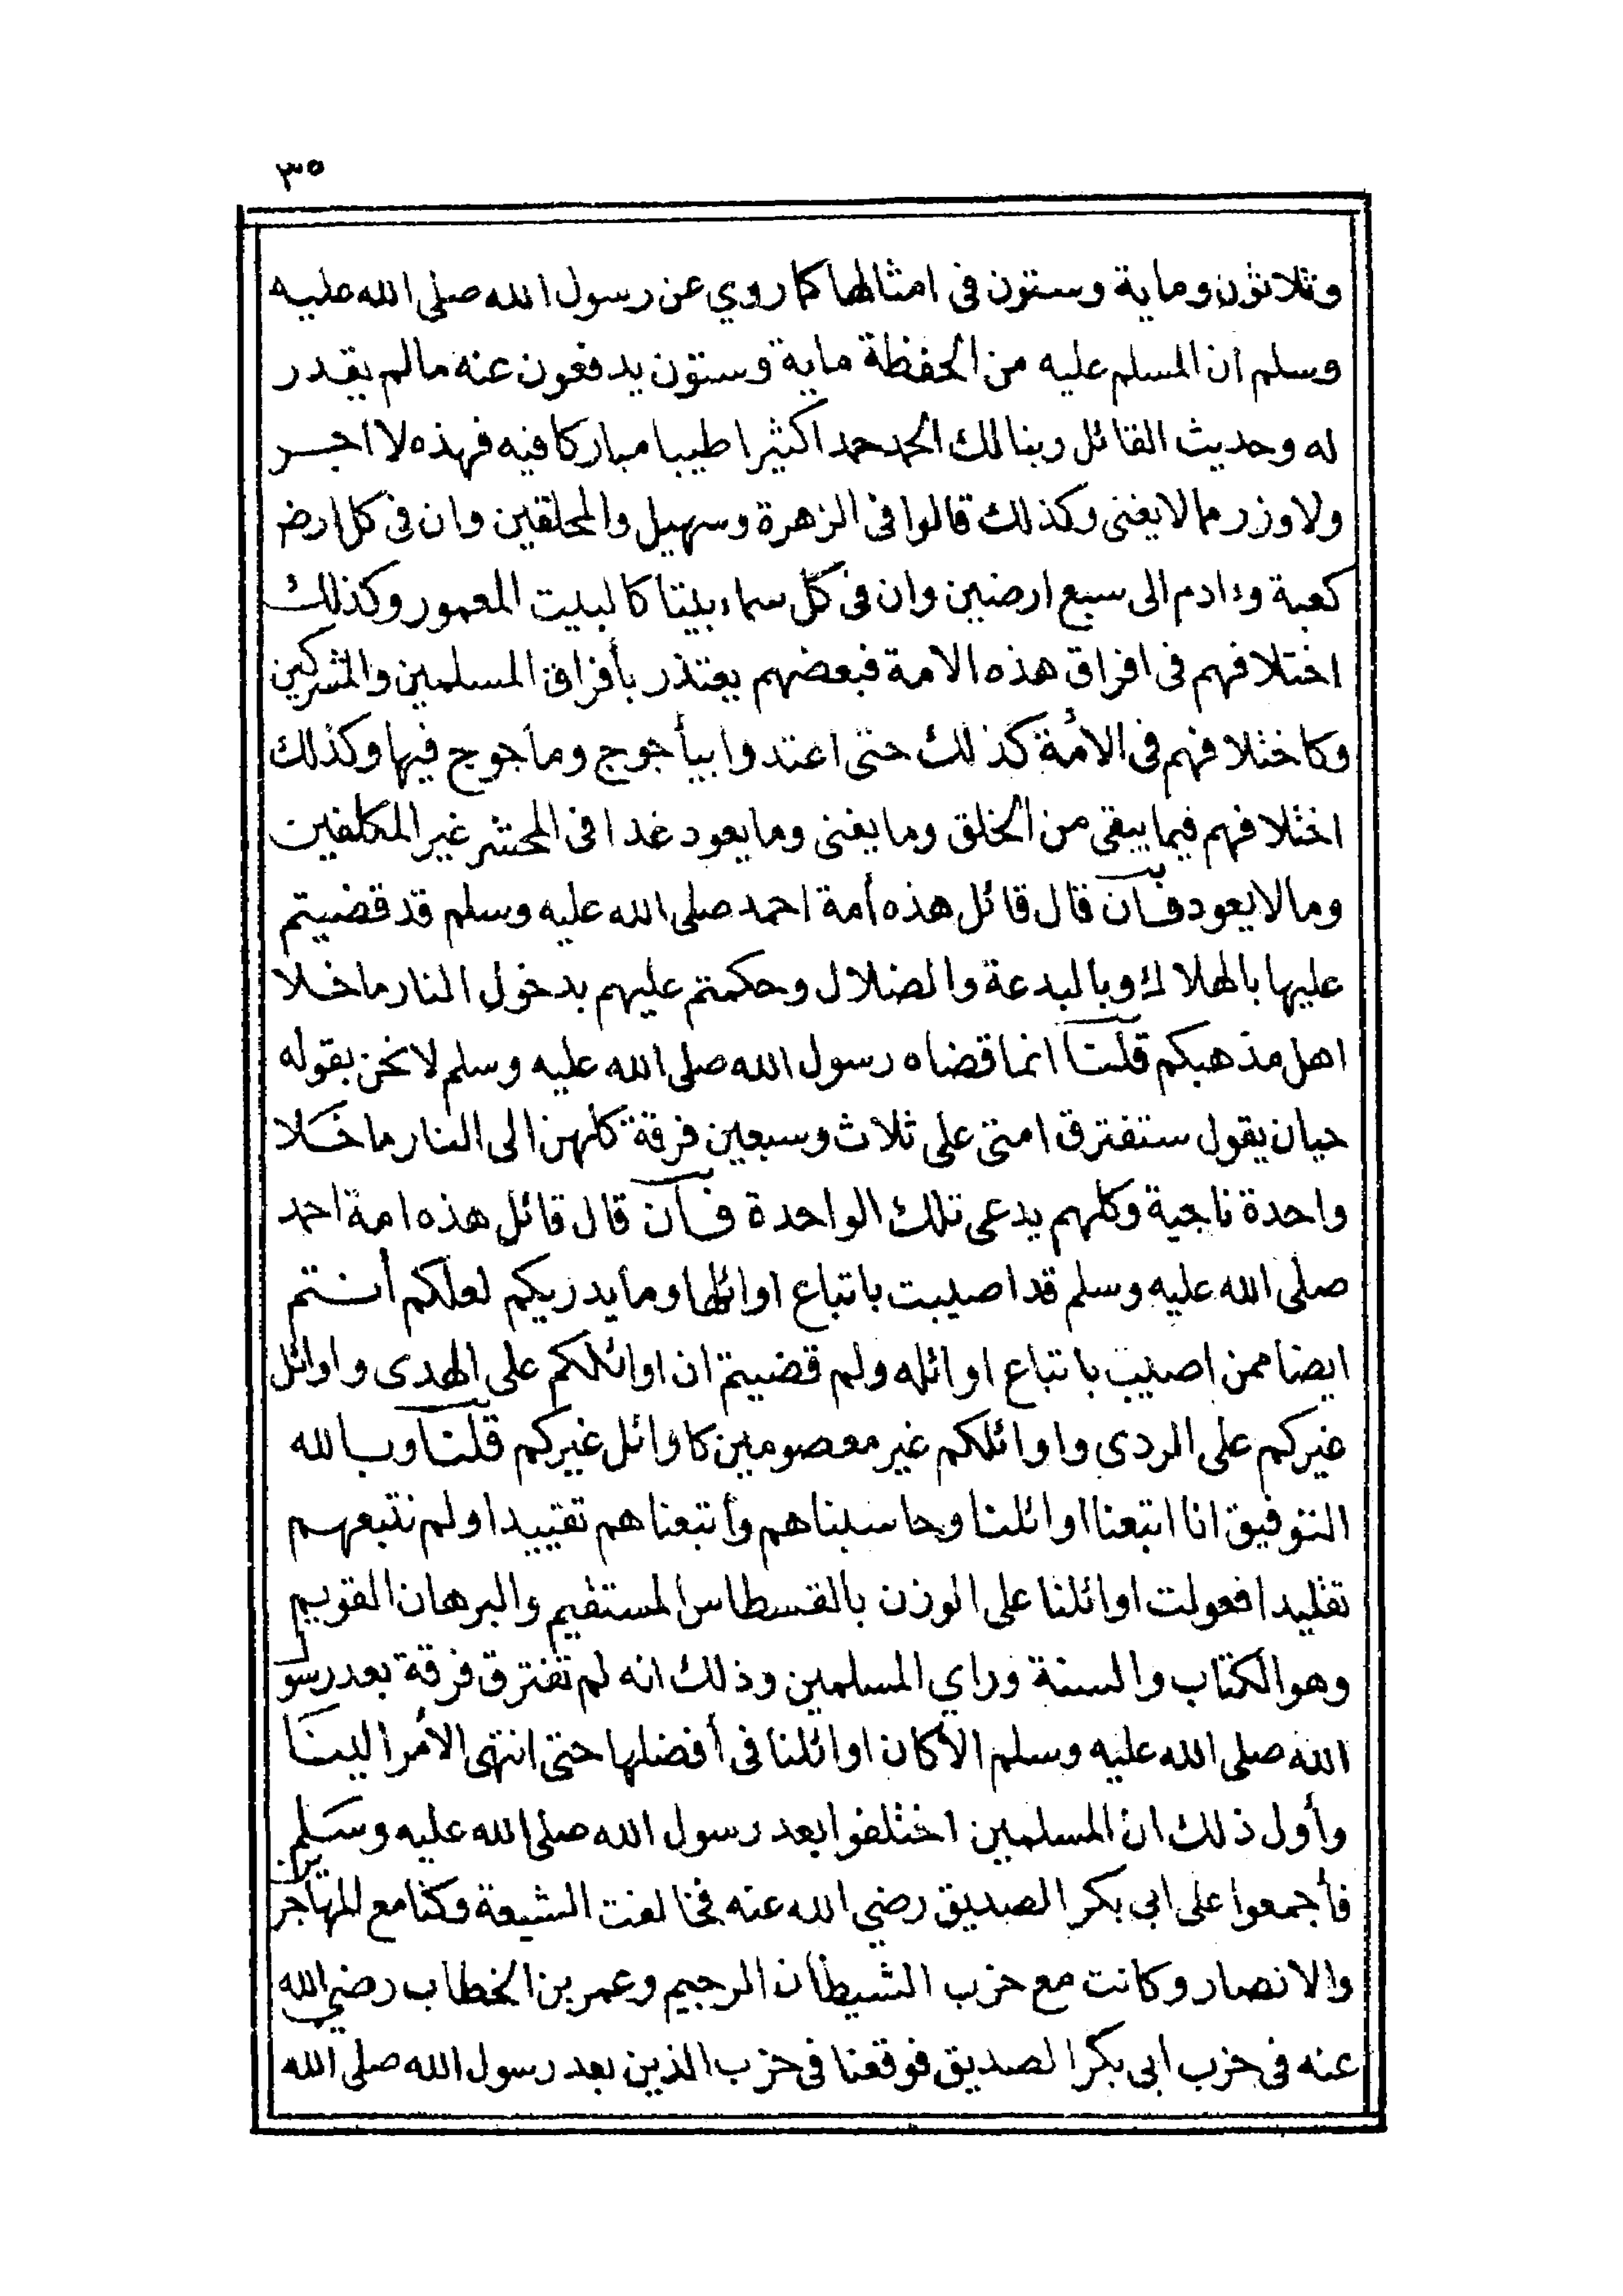 ٣٥
وثلاثون وماية وستون فى امثالها كما روي عن رسول الله صلى الله عليه
وسلم ان المسلم عليه من الحفظة ماية وستون يدفعون عنه مالم يقدر
له وحديث القائل ربنا لك الحمد حمدا كثيرا طيبا مباركا فيه فهذه لا اجر
ولا وزر مما لا يغنى وكذلك قالوا فى الزهرة وسهيل والمحلقين وان فى كل ارض
كعبة وءادم الى سبع ارضين وان فى كل سماء بيتا كالبيت المعمور وكذلك
اختلافهم فى افراق هذه الامة فبعضهم يعتذر بأفراق المسلمين والمشركين
وكاختلافهم فى الأمة كذلك حتى اعتدوا بيأجوج ومأجوج فيها وكذلك
اختلافهم فيما يبقى من الخلق وما يفنى وما يعود غدا فى المحشر غير المكلفين
وما لا يعود فان قال قائل هذه أمة احمد صلى الله عليه وسلم قد قضيتم
عليها بالهلاك وبالبدعة والضلال وحكمتم عليهم بدخول النار ما خلا
اهل مذهبكم قلنا انما قضاه رسول الله صلى الله عليه وسلم لا نحن بقوله
حيان يقول ستفترق امتى على ثلاث وسبعين فرقة كلهن الى النار ما خلا
واحدة ناجية وكلهم يدعى تلك الواحدة فان قال قائل هذه امة احمد
صلى الله عليه وسلم قد اصيبت باتباع اوائلها وما يدريكم لعلكم أنتم
ايضا ممن اصيب باتباع اوائله ولم قضيتم ان اوائلكم على الهدى واوائل
غيركم على الردى واوائلكم غير معصومين كاوائل غيركم قلنا وبالله
التوفيق انا اتبعنا اوائلنا وحاسبناهم وأتبعناهم تقييدا ولم نتبعهم
تقليدا فعولت اوائلنا على الوزن بالقسطاس المستقيم والبرهان القويم
وهو الكتاب والسنة وراي المسلمين وذلك انه لم تفترق فرقة بعد رسول
الله صلى الله عليه وسلم الا كان اوائلنا فى أفضلها حتى انتهى الأمر الينا
وأول ذلك ان المسلمين اختلفوا بعد رسول الله صلى الله عليه وسلم
فأجمعوا على ابى بكر الصديق رضي الله عنه فخالفت الشيعة وكنا مع المهاجرين
والانصار وكانت مع حزب الشيطان الرجيم وعمر بن الخطاب رضي الله
عنه فى حزب ابى بكر الصديق فوقعنا فى حزب الذين بعد رسول الله صلى الله